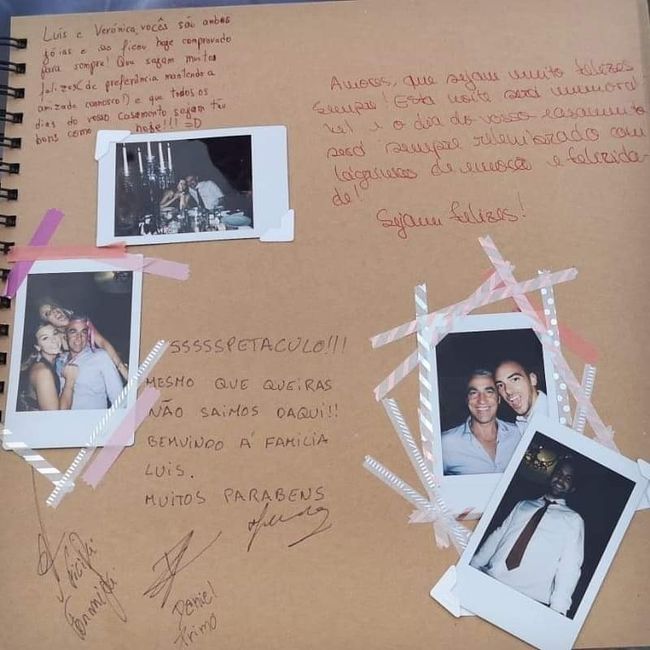 Luís e Verónica, vocês são ambos
jóias e isso ficou hoje comprovado
para sempre! Que sejam muitos
felizes (de preferência mantendo a
amizade connosco!) e que todos os
dias do vosso casamento sejam tão
bons como hoje!!! =D
Amores, que sejam muito felizes
sempre! Esta noite será memorá-
vel e o dia do vosso casamento
será sempre relembrado com
lágrimas de emoção e felicida-
de!
Sejam felizes!
SSSSSPETACULO!!!
MESMO QUE QUEIRAS
NÃO SAIMOS DAQUI!!
BEMVINDO À FAMILIA
LUIS.
MUITOS PARABENS
Daniel
Primo